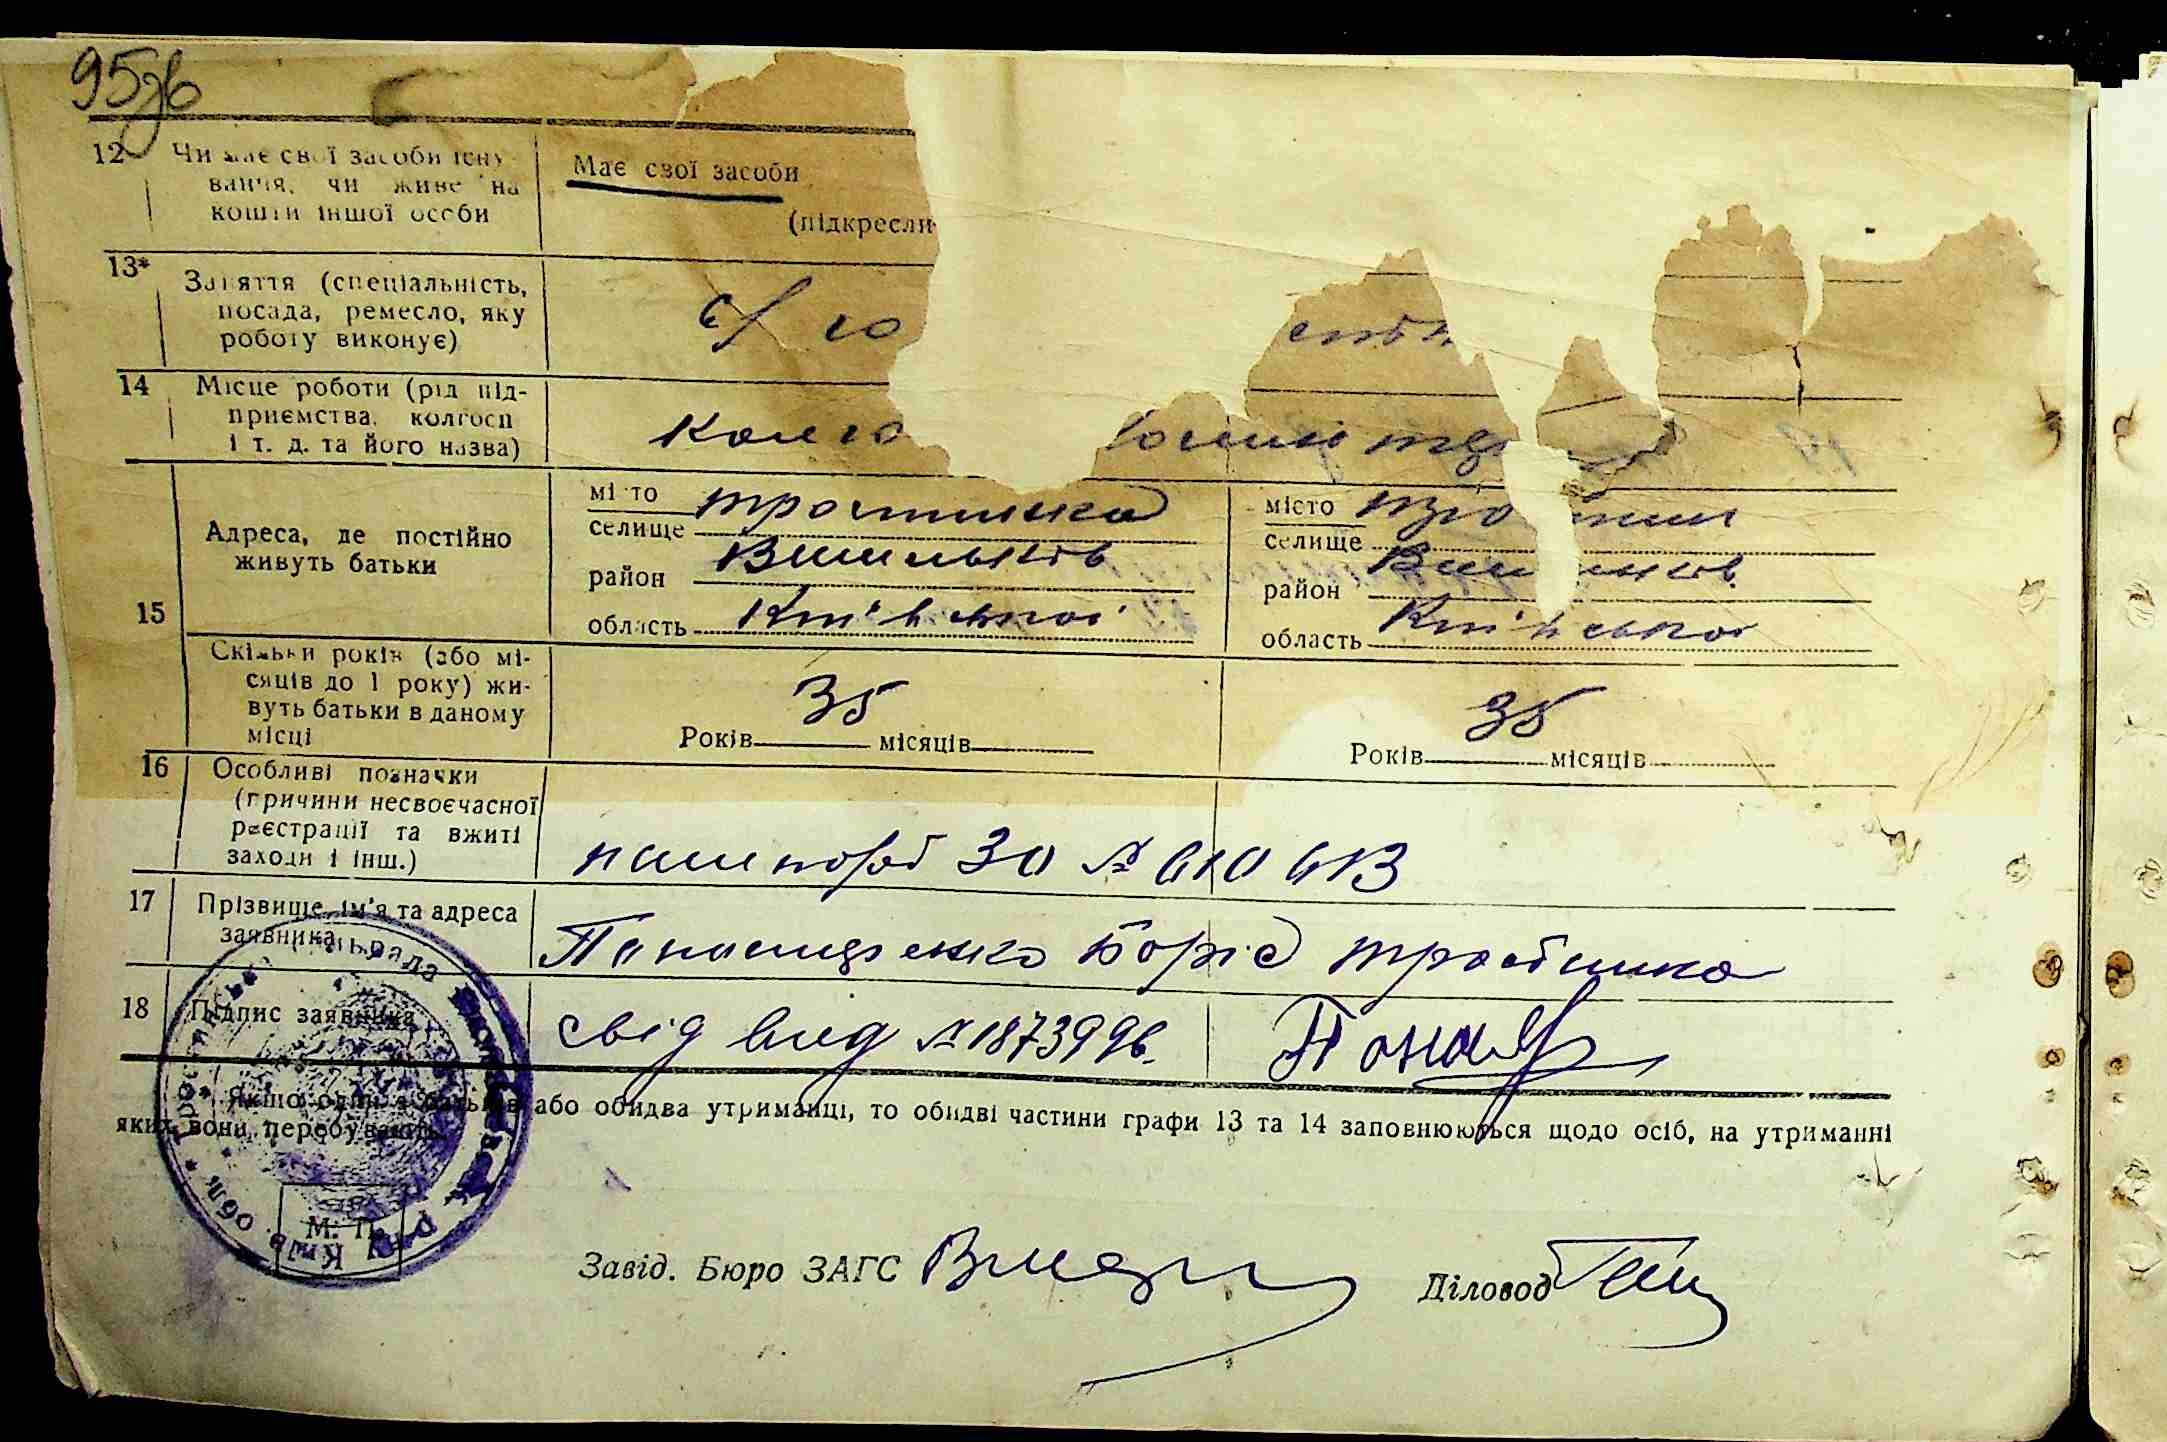 95зв
12 Чи має свої засоби існу-
вання, чи живе на
кошти іншої особи
Має свої засоби
(підкресли
13* Заняття (спеціальність,
посада, ремесло, яку
роботу виконує)
с/го
14 Місце роботи (рід під-
приємства, колгосп
і т. д. та його назва)
Колго
15 Адреса, де постійно
живуть батьки
місто Тростинка
селище
район Васильків
область Київської
місто
селище
район
область Київської
Скільки років (або мі-
сяців до 1 року) жи-
вуть батьки в даному
місці
35
Років місяців
35
Років місяців
16 Особливі позначки
(причини несвоєчасної
реєстрації та вжиті
заходи і інш.)
паспорт ЗО № 610613
17 Прізвище, ім'я та адреса
заявника
Панасенко Боріс Тростинка
18 Підпис заявника
свід вид № 187399
* Якщо один з батьків або обидва утриманці, то обидві частини графи 13 та 14 заповнюються щодо осіб, на утриманні
яких вони перебувають.
М. П.
Завід. Бюро ЗАГС
Діловод